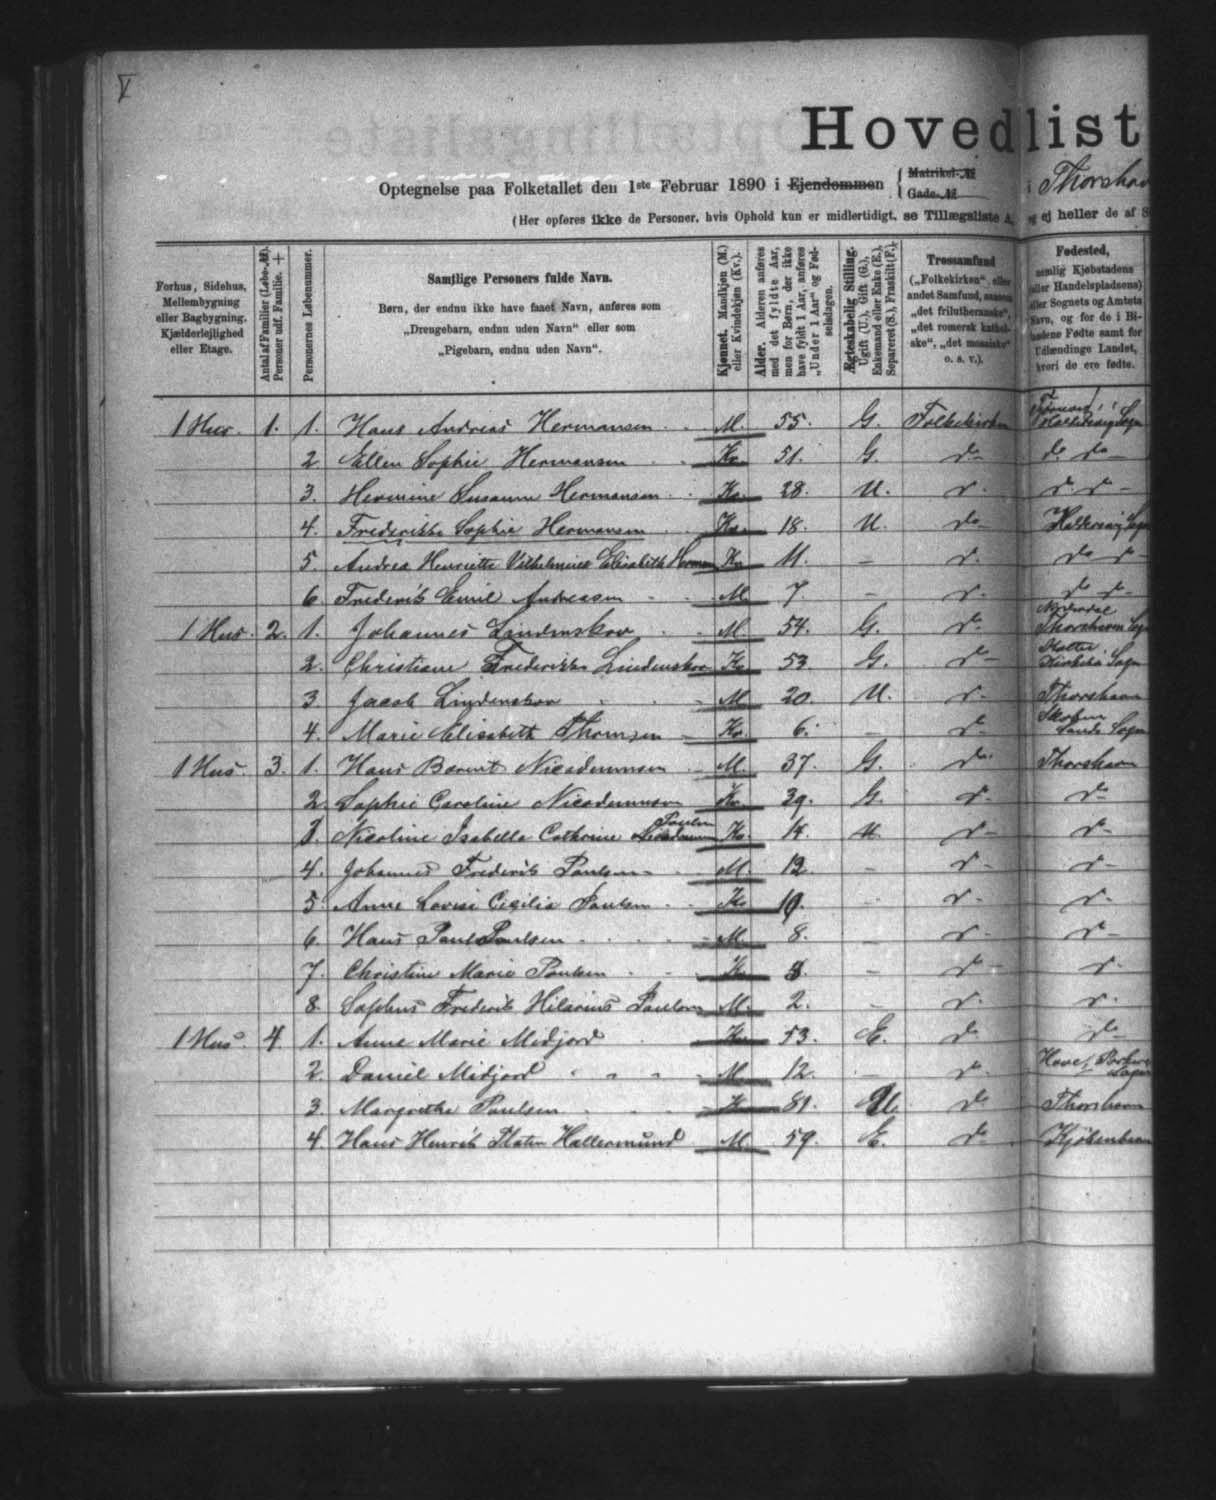 V
Hovedlist
Optegnelse paa Folketallet den 1ste Februar 1890 i Ejendommen { Matrikel-№ Gade-№ i Thorshav
(Her opføres ikke de Personer, hvis Ophold kun er midlertidigt, se Tillægsliste A, og ej heller de af S
Forhus, Sidehus,
Mellembygning
eller Bagbygning.
Kjælderlejlighed
eller Etage.
Antal af Familier (Løbe-№).
Personer udf. Familie. +
Personernes Løbenummer.
Samtlige Personers fulde Navn.
Børn, der endnu ikke have faaet Navn, anføres som
„Drengebarn, endnu uden Navn“ eller som
„Pigebarn, endnu uden Navn“.
Kjønnet. Mandkjøn (M.)
eller Kvindekjøn (Kv.).
Alder. Alderen anføres
med det fyldte Aar,
men for Børn, der ikke
have fyldt 1 Aar, anføres
„Under 1 Aar“ og Fød-
selsdagen.
Ægteskabelig Stilling.
Ugift (U.), Gift (G.),
Enkemand eller Enke (E.),
Separeret (S.), Fraskilt (F.).
Trossamfund
(„Folkekirken“, eller
andet Samfund, saasom
„det frilutheranske“,
„det romersk kathol-
ske“, „det mosaiske“
o. s. v.).
Fødested,
nemlig Kjøbstadens
eller Handelspladsens)
eller Sognets og Amtets
Navn, og for de i Bi-
landene Fødte samt for
Udlændinge Landet,
hvori de ere fødte.
1 Hus. 1. 1. Hans Andreas Hermansen M. 55. G. Folkekirken
2. Ellen Sophie Hermansen Kv. 51. G. do do do
3. Hermine Susanne Hermansen Kv. 28. U. do do do
4. Frederikke Sophie Hermansen Kv. 18. U. do
5. Andrea Henriette Vilhelmine Elisabeth Herman Kv. 11. – do do do
6. Frederik Emil Andreasen M. 7. – do do do
1 Hus. 2. 1. Johannes Lindenskov M. 54. G. do Norderdal Thorshavn Sogn
2. Christiane Frederikke Lindenskov Kv. 53. G. do Sogn
3. Jacob Lindenskov M. 20. U. do Thorshavn
4. Marie Elisabeth Thomsen Kv. 6. – do Skopun Sands Sogn
1 Hus. 3. 1. Hans Berent Nicodemusen M. 37. G. do Thorshavn
2. Sophie Caroline Nicodemusen Kv. 39. G. do do
3. Nicoline Isabella Cathrine Nicodemusen Poulsen Kv. 14. U. do do
4. Johannes Frederik Poulsen M. 12. – do do
5. Anne Lovise Cicilia Poulsen Kv. 10. – do do
6. Hans Paul Poulsen M. 8. – do do
7. Christine Marie Poulsen Kv. – do do
8. Sophus Frederik Hilarius Poulsen M. 2. – do do
1 Hus. 4. 1. Anne Marie Midjord Kv. 53. E. do do
2. Daniel Midjord M. 12. – do Hove, Sogn
3. Margrethe Poulsen Kv. 81. U. do Thorshavn
4. Hans Henrik Platen Hallermund M. 59. E. do Kjøbenhavn